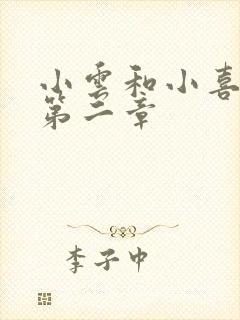 小雲和小喜
第二章
李子中